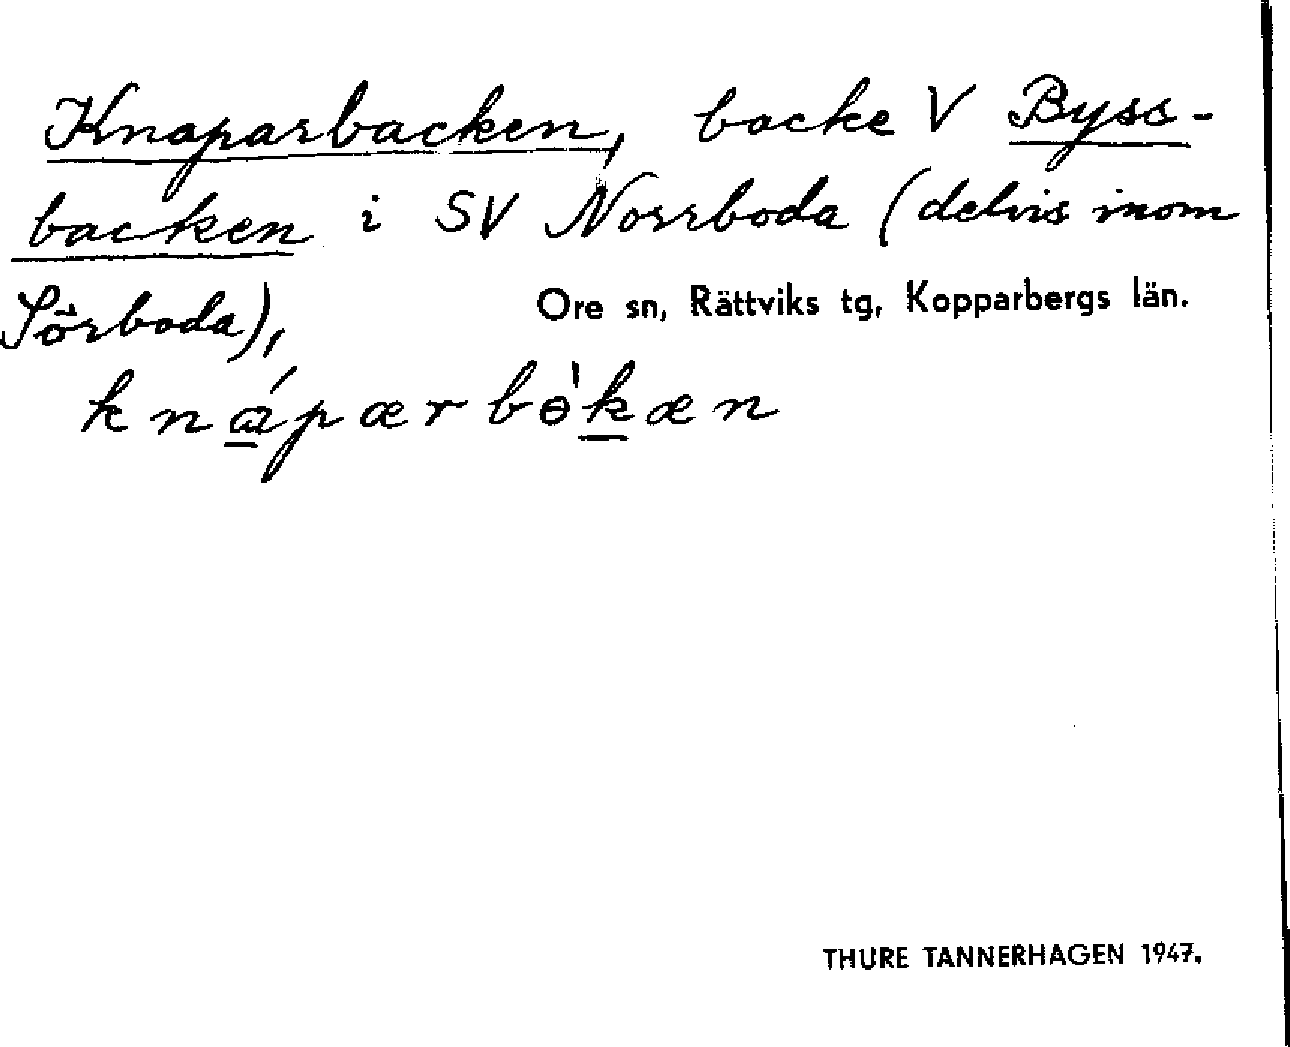 Knaparbacken, backe V Byss-
backen i SV Norrboda (delvis inom
Sörboda),
Ore sn, Rättviks tg, Kopparbergs län.
knápærbɵ̀kæn
THURE TANNERHAGEN 1947.